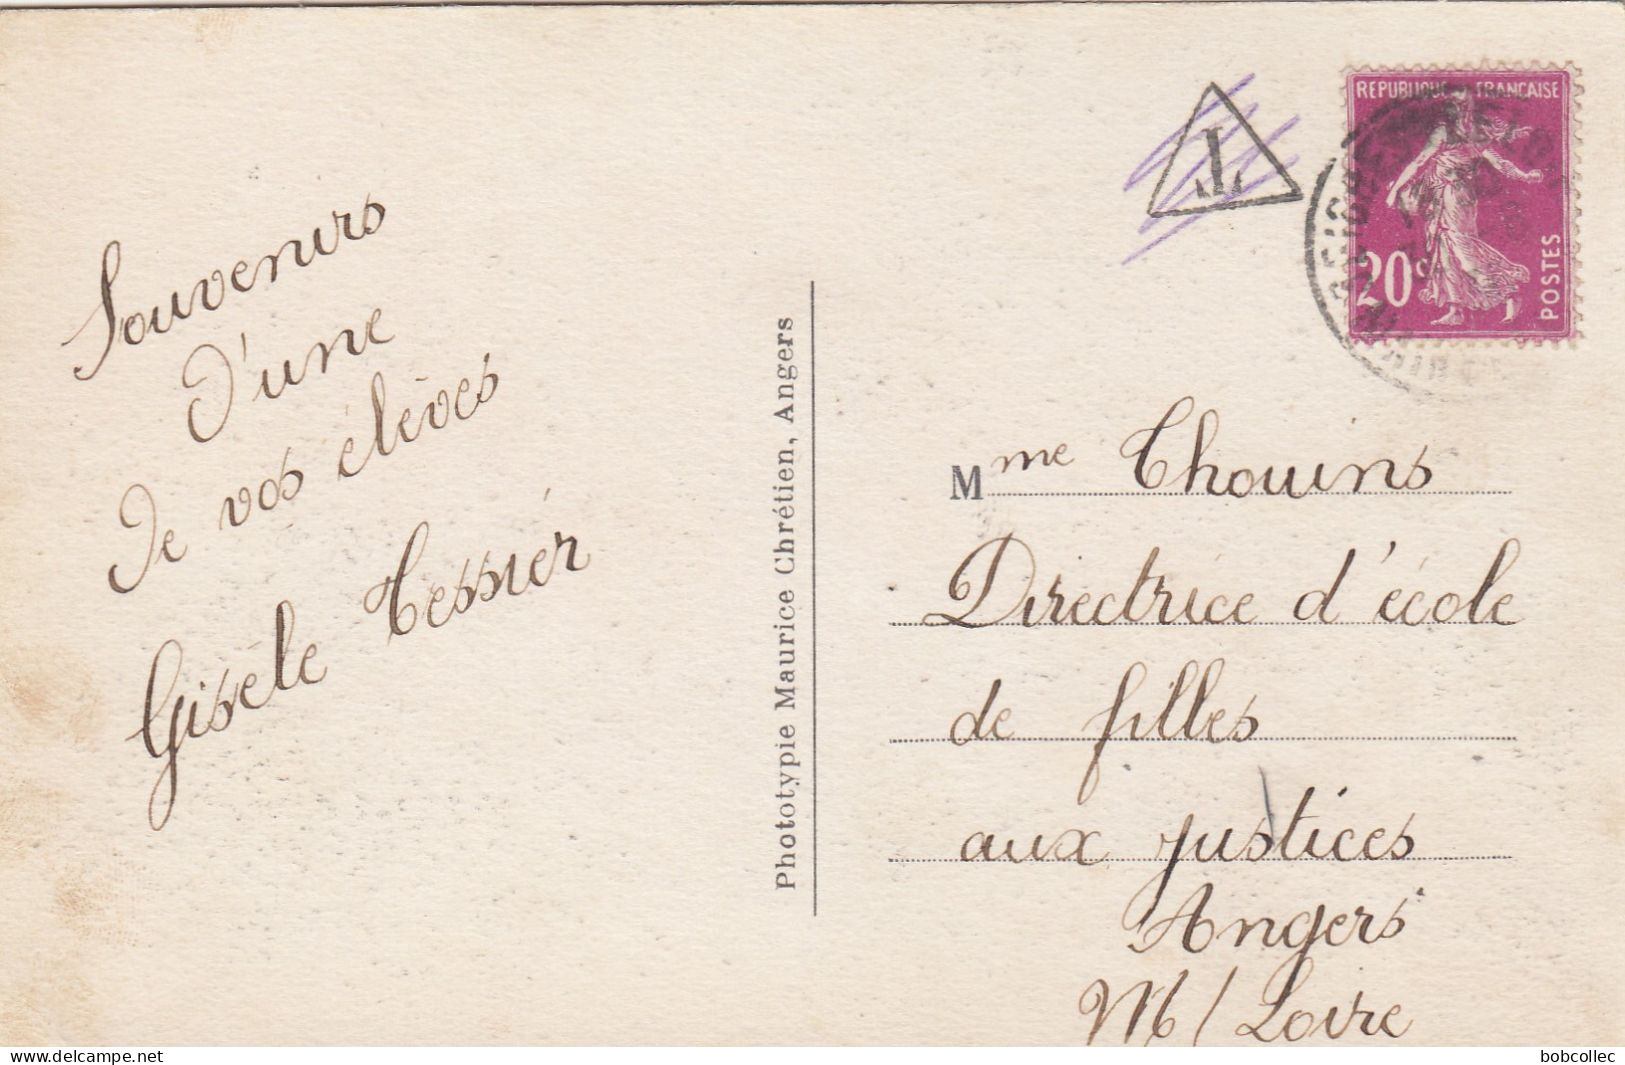 Souvenirs
d'une
de vos élèves
Gisèle Tessier
Phototypie Maurice Chrétien, Angers
T
RÉPUBLIQUE FRANÇAISE
20c
POSTES
Mme Thouins
Directrice d'école
de filles
aux justices
Angers
M/Loire
delcampe.net
bobcollec